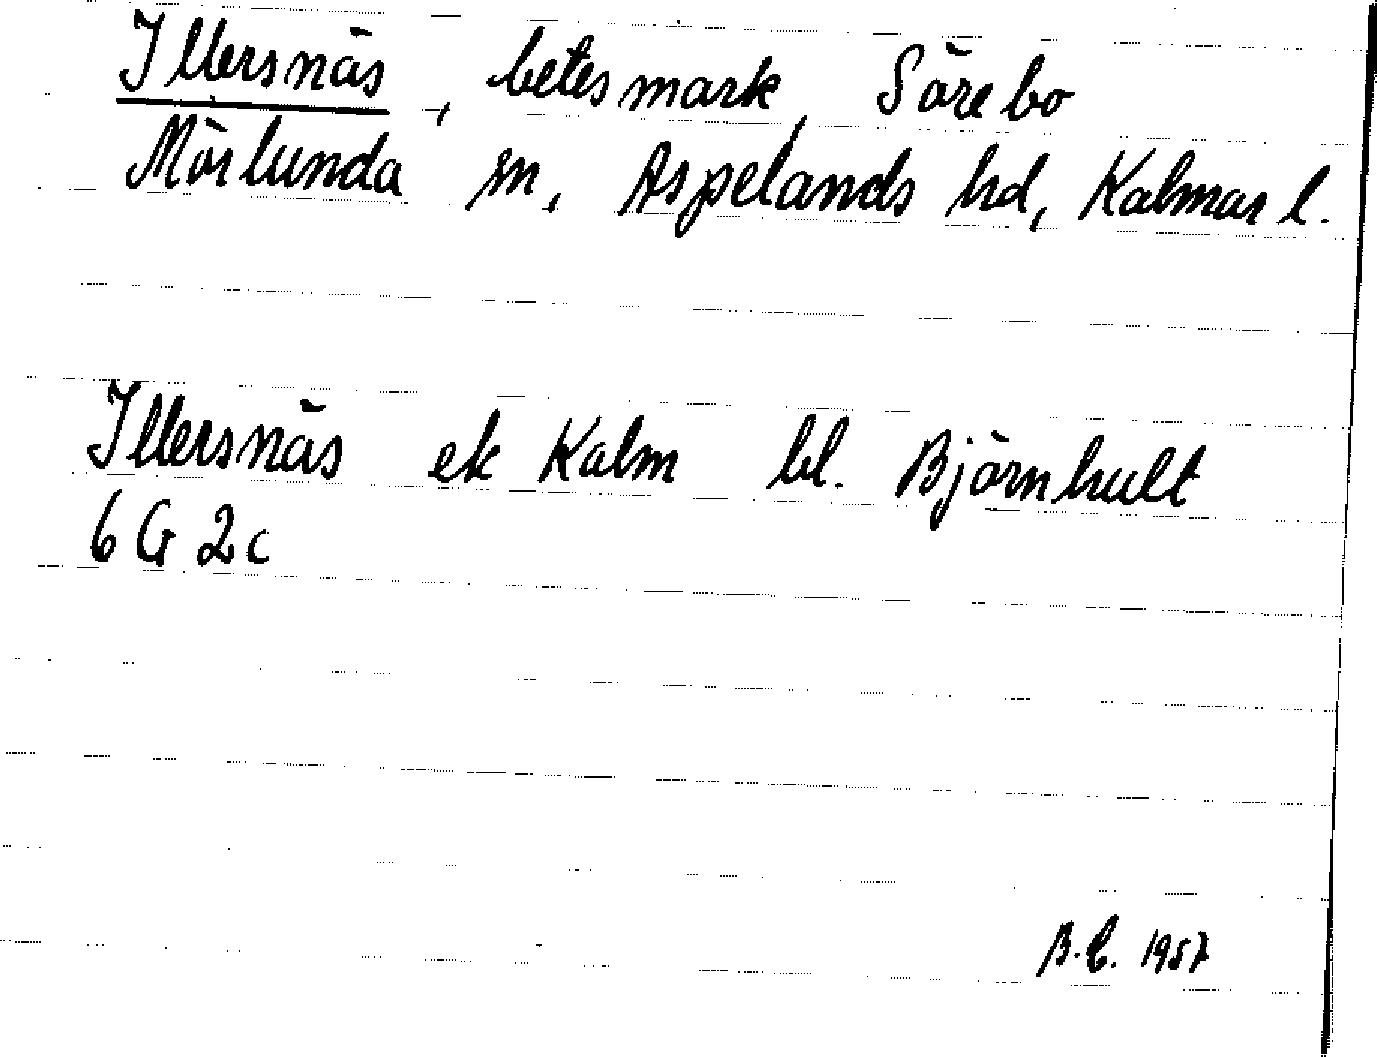 Illersnäs, betesmark, Sörebo
Mörlunda sn, Aspelands hd, Kalmar l.
Illersnäs ek Kalm bl. Björnhult
6 G 2c
B.C. 1957